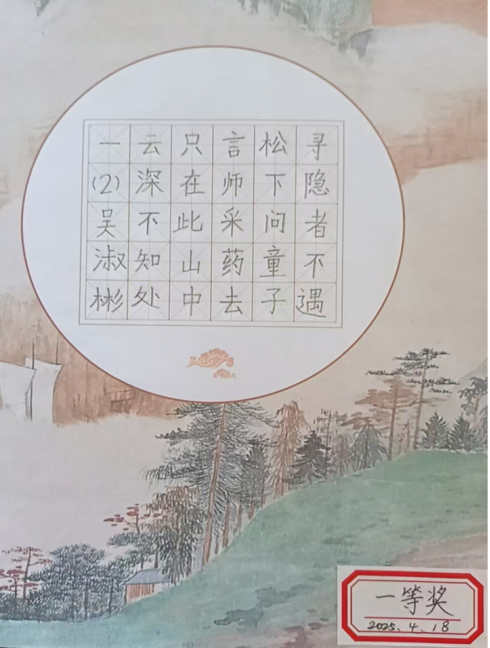 寻隐者不遇
松下问童子
言师采药去
只在此山中
云深不知处
一(2)吴淑彬
一等奖
2025.4.18